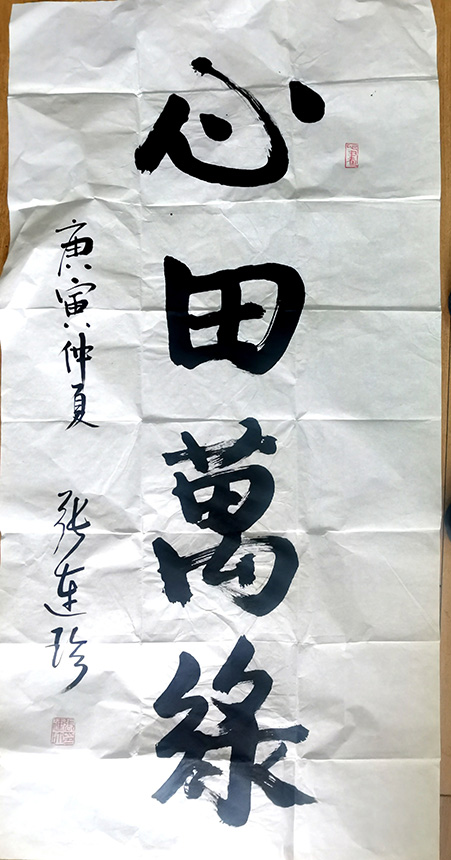 心田萬綠
庚寅仲夏
张连珍